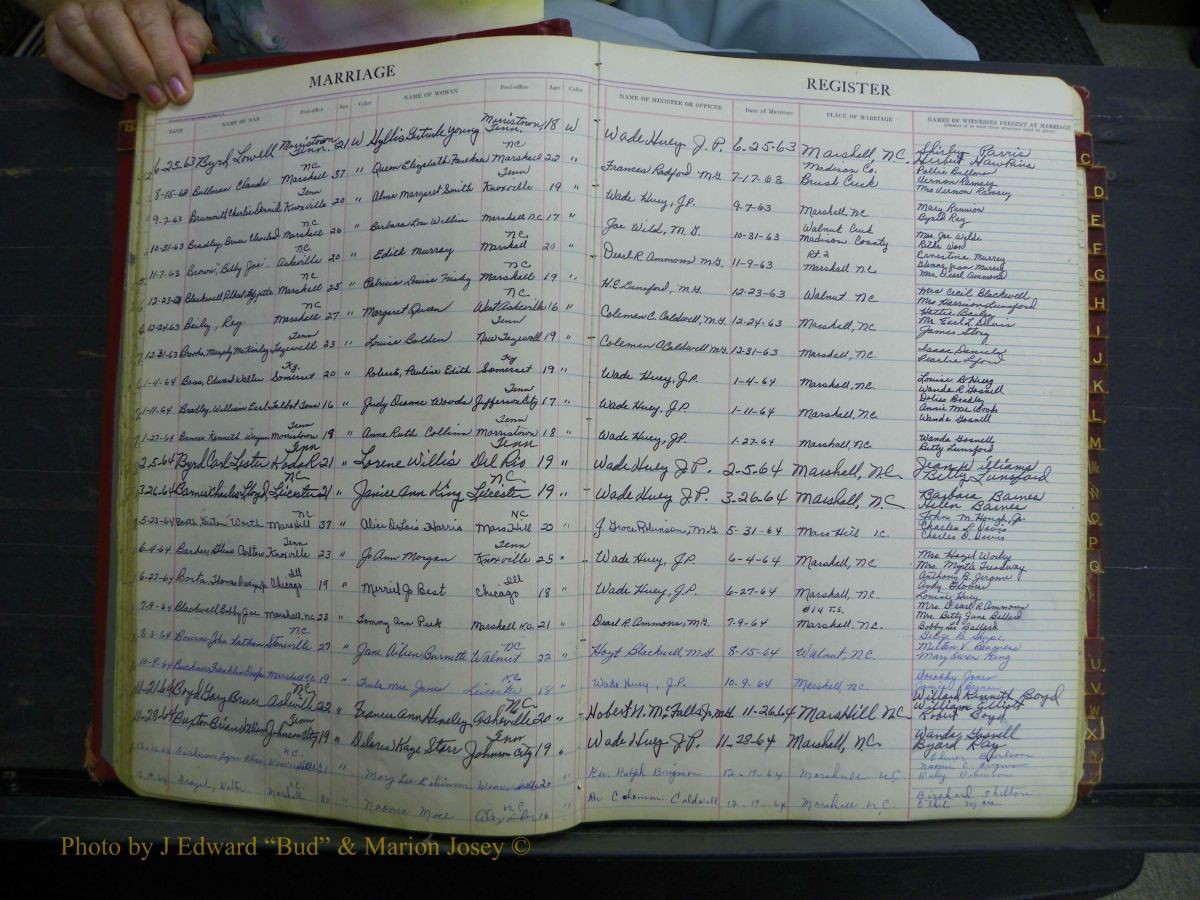 MARRIAGE REGISTER
DATE NAME OF MAN Post-office Age Color NAME OF WOMAN Post-office Age Color NAME OF MINISTER OR OFFICER Date of Marriage PLACE OF MARRIAGE NAMES OF WITNESSES PRESENT AT MARRIAGE
6-25-63 Byrd Lowell Morristown Tenn. 21 W Hyllis Gertrude Young Morristown, Tenn. 18 W Wade Huey J.P. 6-25-63 Marshall, N.C. Shirley Parris
Herbert Hawkins
8-15-63 Bullman Claude Marshall N.C. 37 " Queen Elizabeth Marshall NC 22 " Frances Radford M.G. 7-17-63 Madison Co. Brush Creek Pollie Bullman
Vernon Ramsey
Mrs Vernon Ramsey
9-7-63 Brummitt Charlie Daniel Knoxville Tenn 20 " Alma Margaret Smith Knoxville Tenn 19 " Wade Huey, J.P. 9-7-63 Marshall, N.C. Mary Runnion
Byrd Ray
10-31-63 Bradley, Cleveland Marshall N.C. 26 " Barbara Lou Marshall N.C. 17 " Joe Wild, M.G. 10-31-63 Walnut Creek Madison County Mrs. Joe Wilde
11-7-63 Brown, "Billy Joe" Asheville N.C. 20 " Edith Murray Marshall N.C. 20 " Dearl R. Ammons M.G. 11-9-63 Rt. 2 Marshall N.C. Ernestine Murray
Jean Murray
Mrs. Dearl Ammons
12-23-63 Blackwell Marshall NC 25 " Patricia Louise Marshall NC 19 " H.E. Lunsford, M.G. 12-23-63 Walnut N.C. Mrs Cecil Blackwell
Mrs Harrison Lunsford
12-24-63 Baily, Ray Marshall N.C. 27 " Margaret Queen West Asheville N.C. 16 " Coleman C. Caldwell, M.G. 12-24-63 Marshall, N.C. Hattie Bailey
Mr. Earl L.
James
12-31-63 Brooks, Murphy McKinley Tazewell Tenn 23 " Louise Bolden New Tazewell Tenn 19 " Coleman C Caldwell M.G. 12-31-63 Marshall, N.C. Isaac Daniels
Pearlie
1-4-64 Bass, Edward Walter Somerset Ky. 20 " Roberts, Pauline Edith Somerset Ky 19 " Wade Huey, J.P. 1-4-64 Marshall, N.C. Louise B Huey
Wanda R Gosnell
1-11-64 Bradley, William Earl Talbot Tenn 16 " Judy Dianne Woods Jefferson City Tenn 17 " Wade Huey, J.P. 1-11-64 Marshall, N.C. Bradley
Annie Mae Woods
Wanda Gosnell
1-27-64 Banner Kenneth Wayne Morristown Tenn 19 " Anna Ruth Collins Morristown Tenn 18 " Wade Huey, J.P. 1-27-64 Marshall, N.C. Wanda Gosnell
Betty Lunsford
2-5-64 Byrd Carl Lester Kodak Tenn 21 " Lorene Willis Del Rio Tenn 19 " Wade Huey J.P. 2-5-64 Marshall, N.C. Jean Williams
Betty Lunsford
3-26-64 Barnes Charles Lloyd Leicester N.C. 21 " Janice Ann King Leicester N.C. 19 " Wade Huey J.P. 3-26-64 Marshall, N.C. Barbara Baines
Helen Baines
5-23-64 Worth Mars Hill N.C. 37 " Alice DeLois Harris Mars Hill N.C. 22 " J. Grace Robinson, M.G. 5-31-64 Mars Hill N.C. John M. Hough, Jr.
Charles L. Davis
Charles O. Davis
6-4-64 Barker, Glenn Carlton Knoxville Tenn 23 " Jo Ann Morgan Knoxville Tenn 25 " Wade Huey, J.P. 6-4-64 Marshall, N.C. Mrs. Hazel Worley
Mrs. Myrtle Treadway
6-27-64 Thomas Chicago Ill 19 " Merril Jo Best Chicago Ill 18 " Wade Huey, J.P. 6-27-64 Marshall, N.C. Anthony B. Jerome
Andy
Louise Huey
7-9-64 Blackwell Bobby Joe Marshall, N.C. 23 " Tommy Ann Peek Marshall N.C. 21 " Dearl R. Ammons, M.G. 7-9-64 #1 4 T.S. Marshall, N.C. Mrs. Dearl R. Ammons
Mrs. Betty Jane Ballard
Bobby Lee Ballard
8-3-64 Bourne John Nathan N.C. 27 " Jane Aileen Burnette Walnut N.C. 22 " Hoyt Blackwell M.G. 8-15-64 Walnut, N.C. George B.
Milton V.
Mary Owen King
10-9-64 Buckner Franklin Marshall N.C. 19 " Twila Mae Jones Leicester N.C. 18 " Wade Huey, J.P. 10-9-64 Marshall, N.C. Dorothy Jones
11-21-64 Boyd Gary Bruce Asheville N.C. 22 " Frances Ann Hensley Asheville N.C. 20 " Hobert N. McFalls Jr. M.G. 11-26-64 Mars Hill N.C. Willard Kenneth Boyd
William Elliott
Robert Boyd
11-28-64 Buxton Johnson City Tenn 19 " Deloris Kaye Starr Johnson City Tenn 19 " Wade Huey J.P. 11-28-64 Marshall, N.C. Wanda Gosnell
Byard Ray
N.C. 21 " Mary Lee Robinson 20 " Rev. Ralph Brigman 12-19-64 Marshall N.C. Ruby Robinson
Brazel, Walter Marshall N.C. 20 " Naomia Mace Alexander N.C. 16 " Coleman Caldwell 12-19-64 Marshall N.C. Shelton
Ethel Mace
C
D
E
F
G
H
I
J
K
L
M
N
O
P
Q
U
V
W
X
Photo by J Edward “Bud” & Marion Josey ©